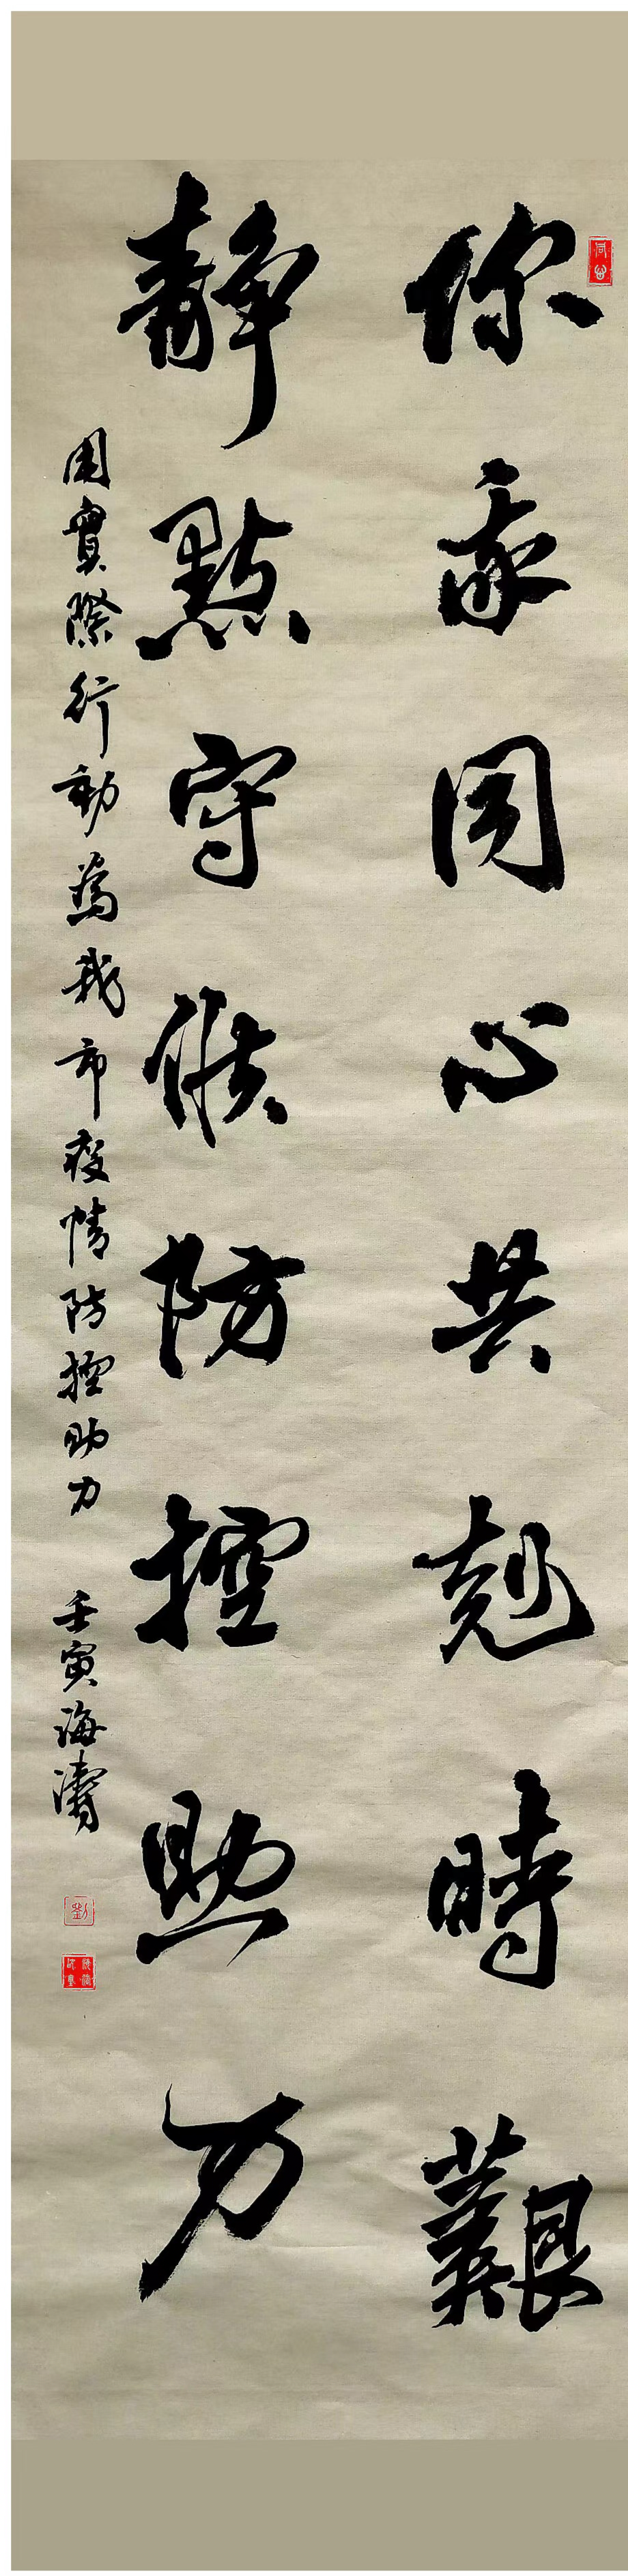 你我同心共剋時艱
静默守候防控助力
用實際行動為我市疫情防控助力 壬寅海濤
劉